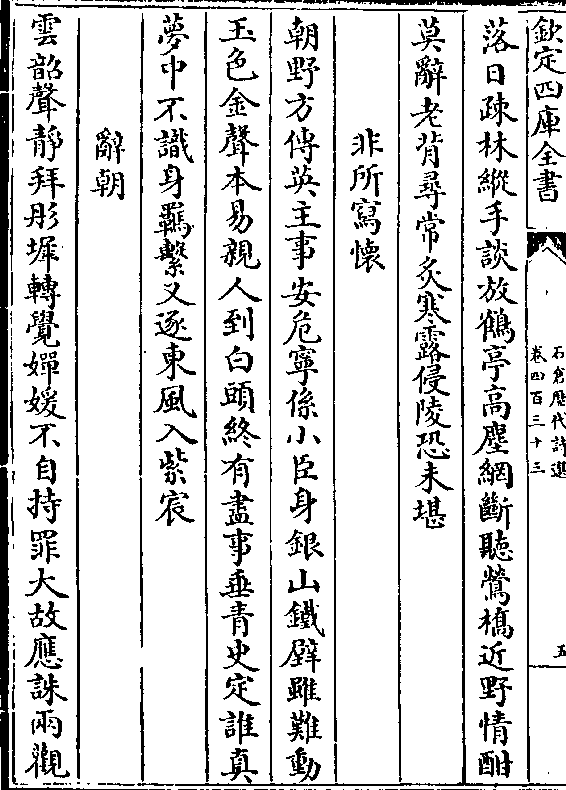 欽定四庫全書
石倉歷代詩選
卷四百三十三
五
落日疎林縱手談放鶴亭高塵網斷聽鶯橋近野情酣
莫辭老背尋常炙寒露侵陵恐未堪
非所寫懷
朝野方傳英主事安危寧係小臣身銀山鐵壁雖難動
玉色金聲本易親人到白頭終有盡事垂青史定誰真
夢中不識身羈繫又逐東風入紫宸
辭朝
雲韶聲靜拜彤墀轉覺嬋媛不自持罪大故應誅兩觀